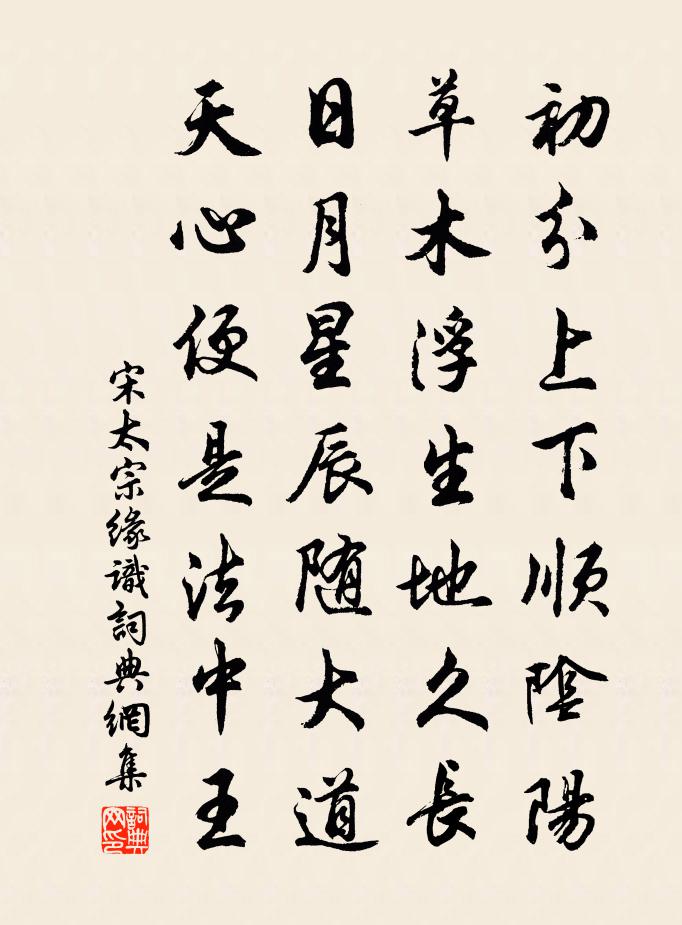 初分上下順陰陽
草木浮生地久長
日月星辰随大道
天心便是法中王
宋太宗緣識詞典網集
詞典网印